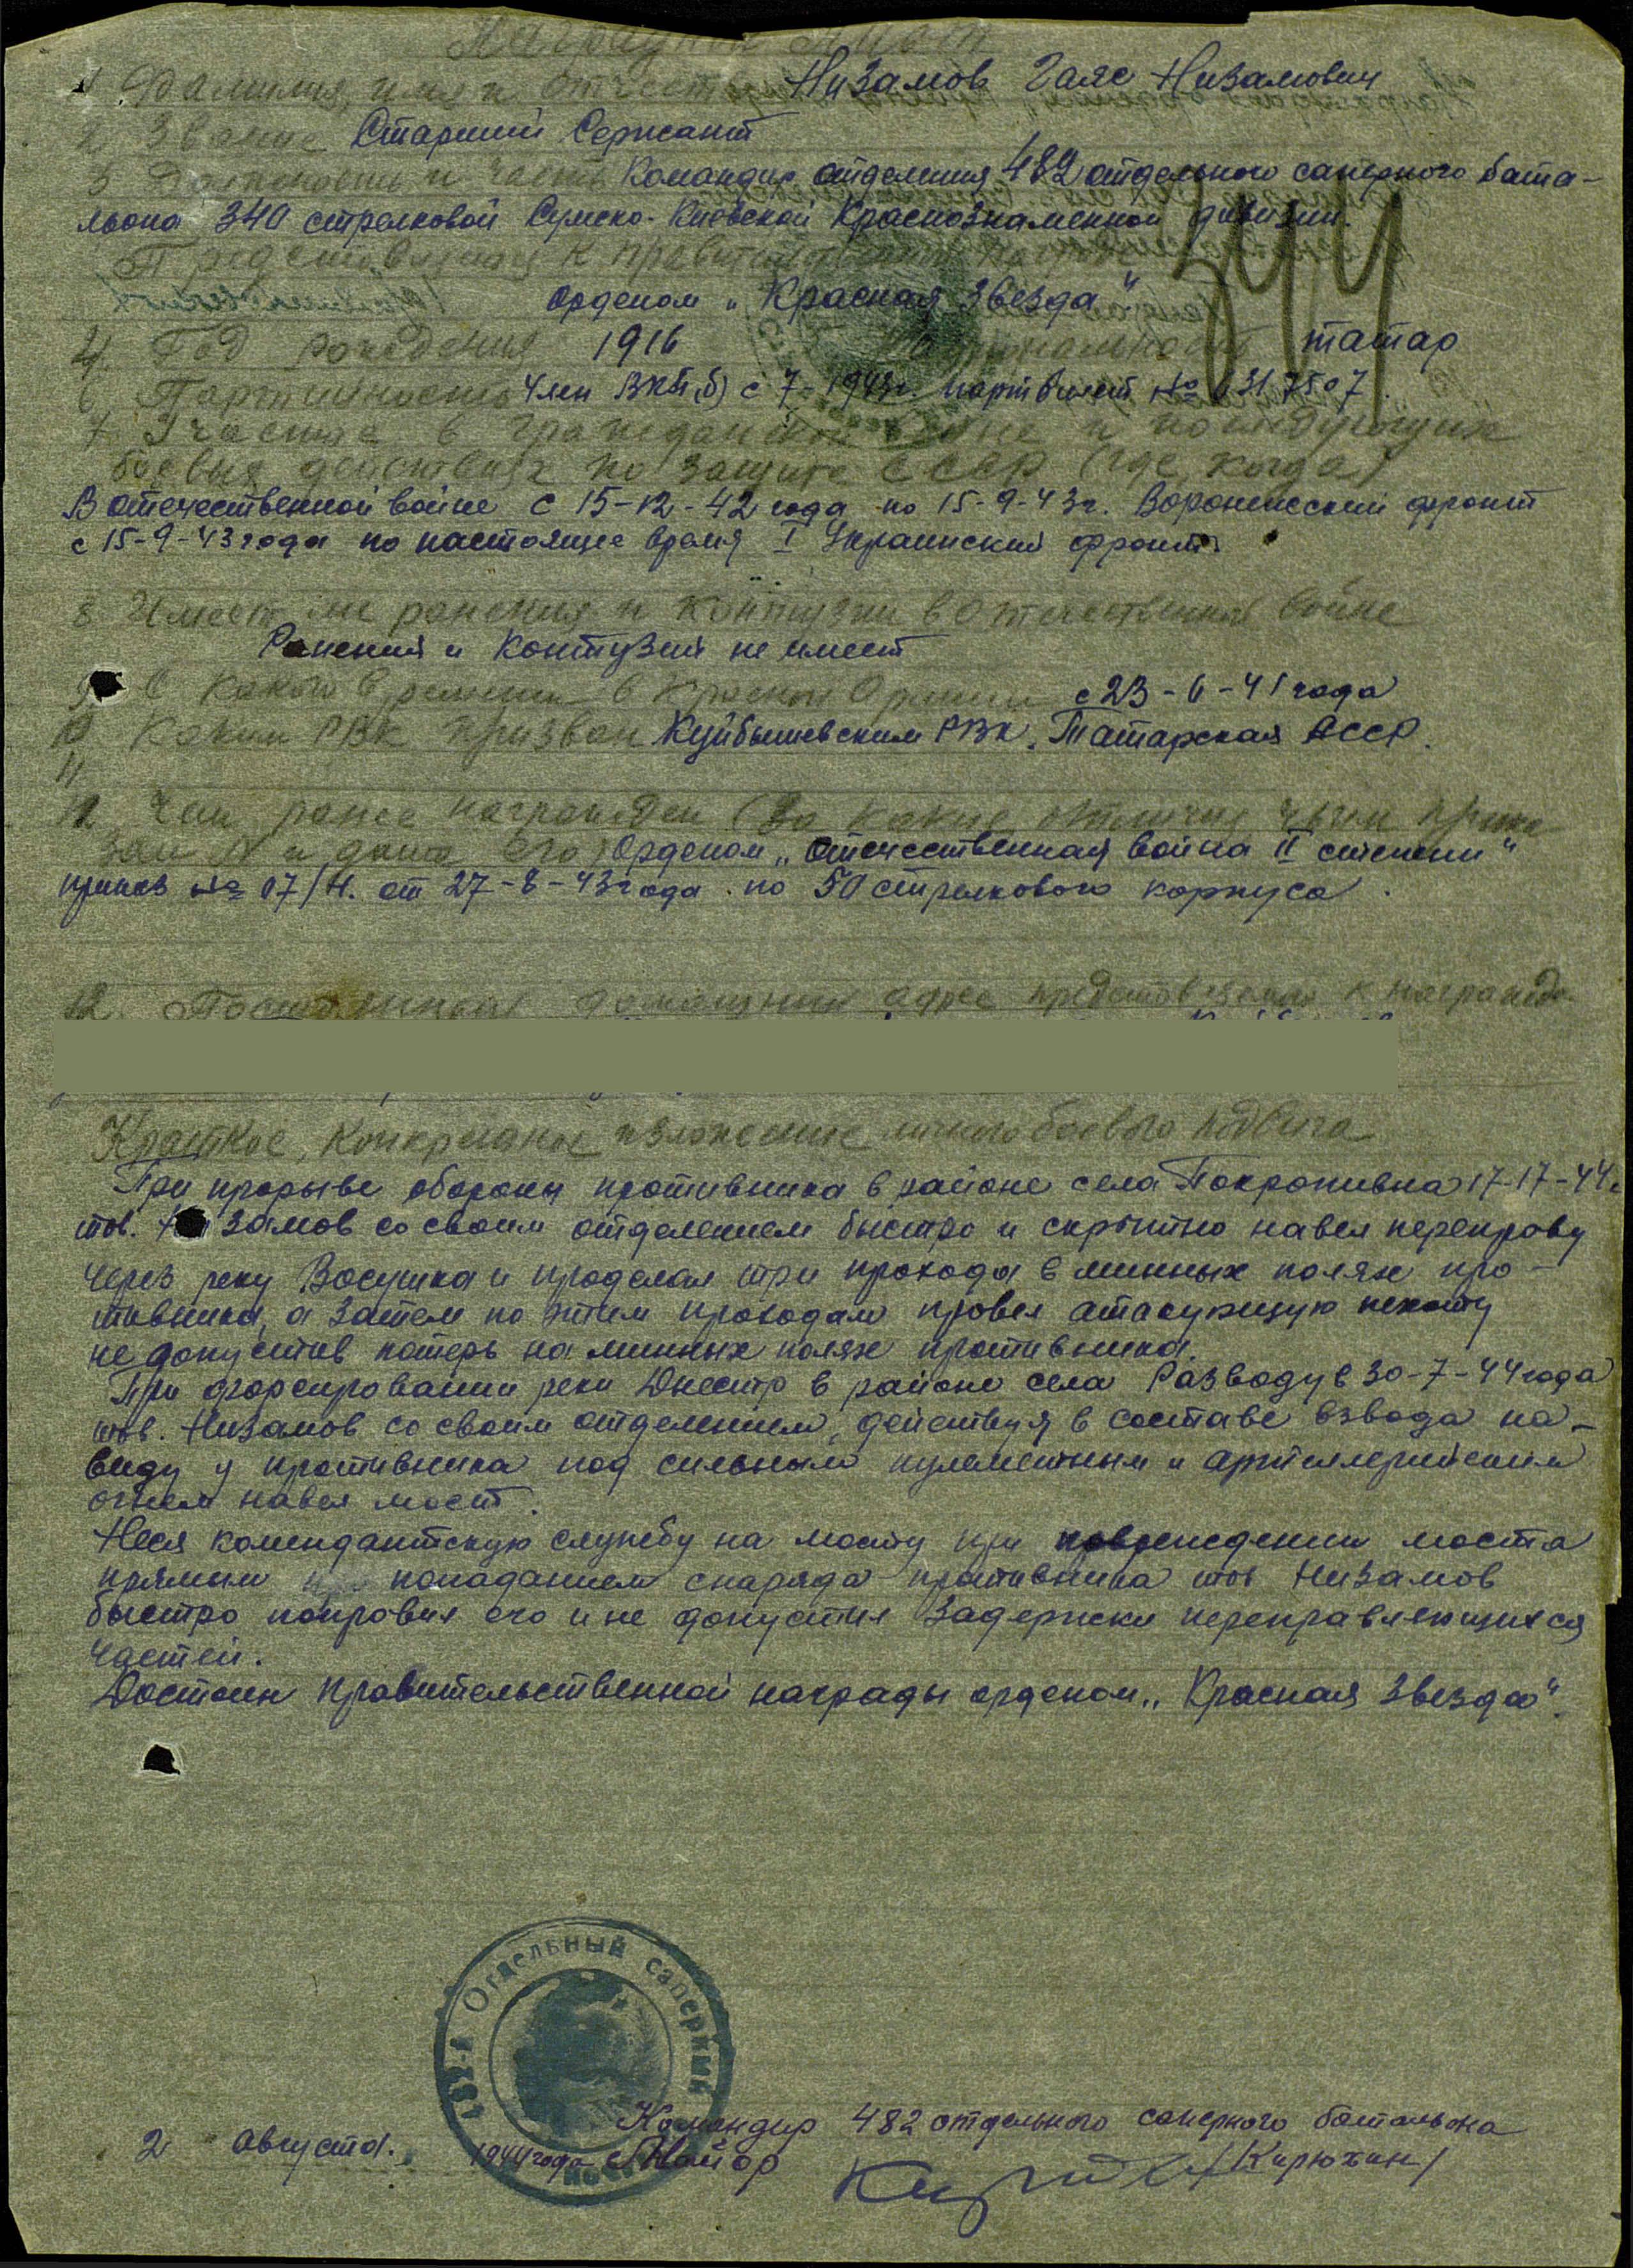 Наградной лист
1 Фамилия, имя и отчество Низамов Гаяс Низамович
2 Звание Старший Сержант
3 Должность и часть Командир отделения 482 отдельного саперного бата-
льона 340 стрелковой Сумско-Киевской Краснознаменной дивизии.
Представляется к правительственной награде
орденом „Красная Звезда"
344
4. Год рождения 1916 национальность татар
6 Партийность Член ВКП(б) с 7-1943г. партбилет №
7. Участие в гражданской войне и последующих
боевых действиях по защите СССР (где, когда)
В отечественной войне с 15-12-42 года по 15-9-43г. Воронежский фронт
с 15-9-43 года по настоящее время I Украинский фронт
8 Имеет ли ранения и контузии в Отечественной войне
Ранения и контузия не имеет
9 С какого времени в Красной Армии с 23-6-41 года
10 Каким РВК призван Куйбышевским РВК, Татарская АССР.
11
12 Чем ранее награжден (за какие отличия, чьим прика
зом № и дата его) Орденом „Отечественная война II степени"
приказ № 07/Н. от 27-8-43 года по 50 стрелкового корпуса.
12. Постоянный домашний адрес представляемого к награжде
Краткое, конкретное изложение личного боевого подвига
При прорыве обороны противника в районе села 17-17-44г
тов. Низамов со своим отделением быстро и скрытно навел переправу
через реку и проделал три прохода в минных полях про-
тивника, а затем по этим проходам провел атакующую пехоту
не допустив потерь на минных полях противника.
При форсировании реки Днестр в районе села Разводув 30-7-44 года
тов. Низамов со своим отделением, действуя в составе взвода на-
виду у противника под сильным пулеметным и артиллерийским
огнем навел мост.
Неся комендантскую службу на мосту при повреждении моста
прямым попаданием снаряда противника тов Низамов
быстро поправил его и не допустил задержки переправляющихся
частей.
Достоин правительственной награды орденом „Красная Звезда".
482-й Отдельный саперный
Командир 482 отдельного саперного батальона
2 августа. 1944 года Майор /Кирюхин/